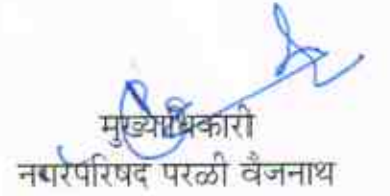 मुख्याधिकारी
नगरपरिषद परळी वैजनाथ